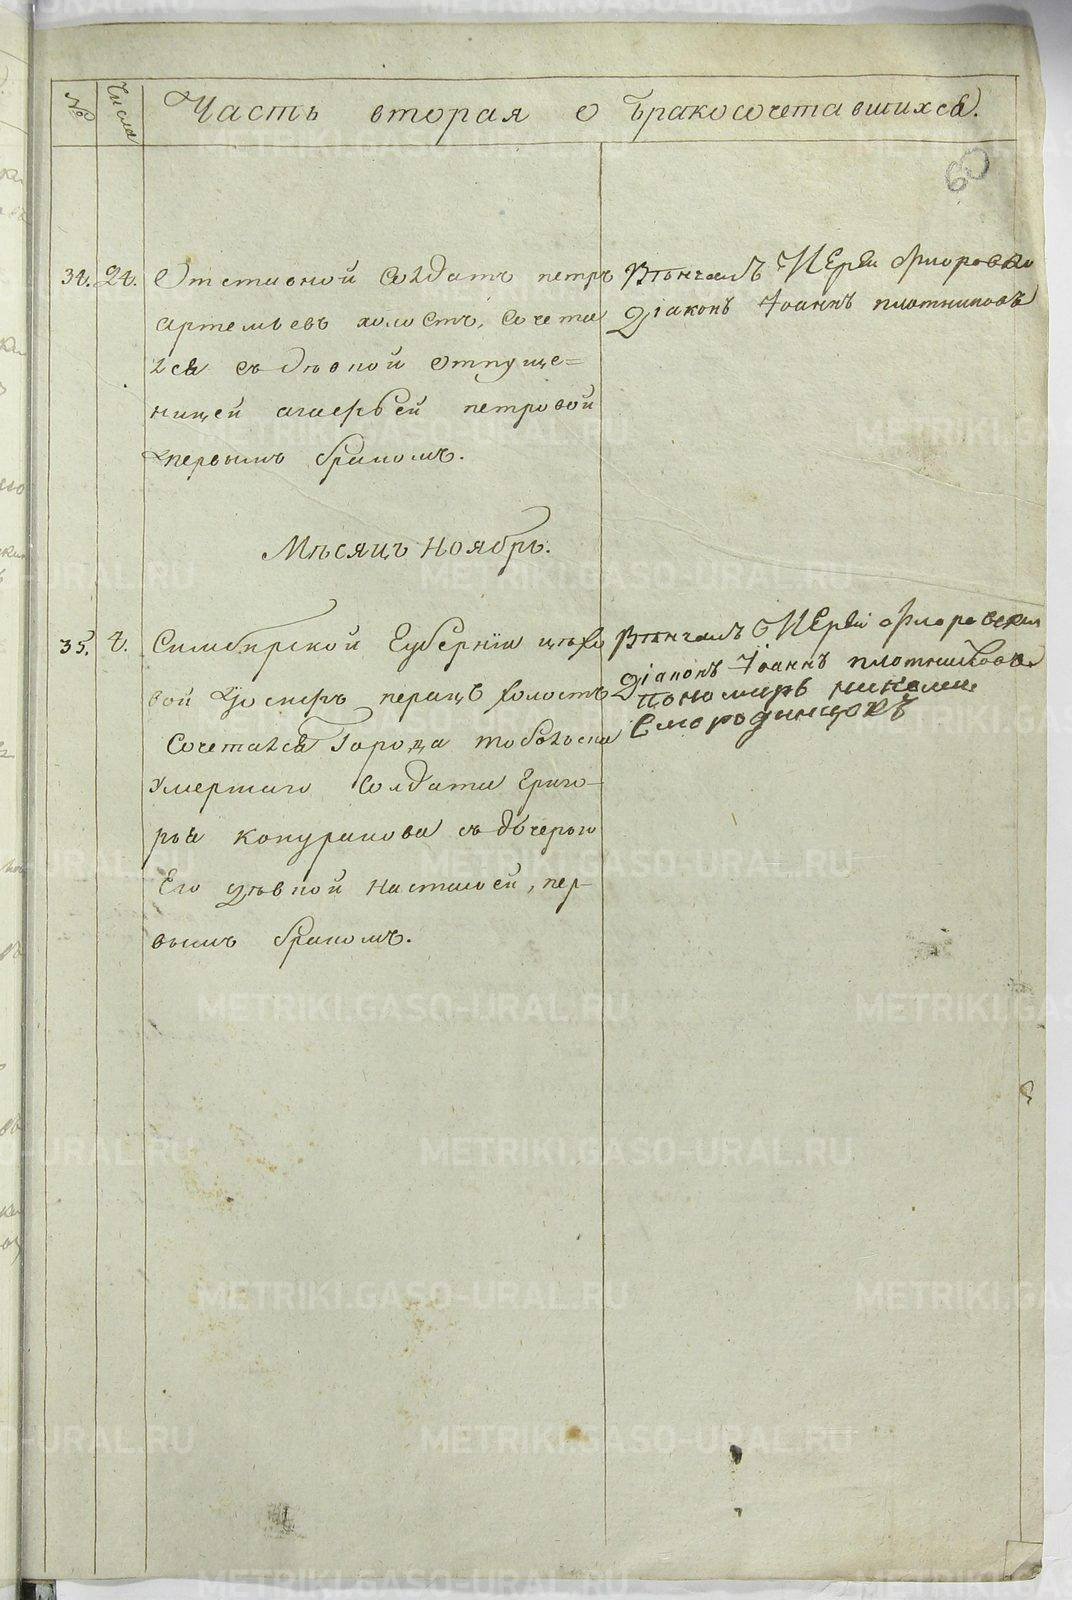 №
Числа
Часть вторая о бракосочетавшихся.
60
34. 24. Отставной солдатъ петръ
артемьевъ холостъ, сочета
лся съ дѣвкой отпуще=
ницей агафьей петровой
первымъ бракомъ.
Вѣнчалъ Иерей Флоровски
Діаконъ Іоаннъ плотниковъ
Мѣсяцъ Ноябрь.
35. 4. Симбирской Губерніи цѣхо
вой перацъ холостъ
сочетался Города тобольска
умершаго солдата Григо-
рья кокуракова съ дочерью
Его дѣвкой настасьей, пер-
вымъ бракомъ.
Вѣнчалъ Иерей Флоровский
Діаконъ Іоаннъ плотниковъ
пономарь николай
Смородинцовъ
METRIKI.GASO-URAL.RU